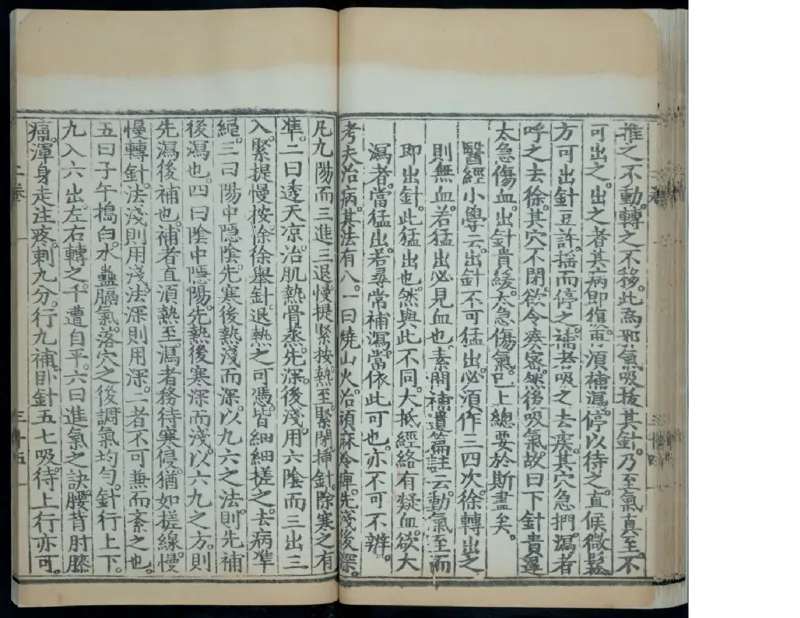 推之不動。轉之不移。此為邪氣吸拔其針。乃至氣真至。不
可出之。出之者其病即復。再須補瀉。停以待之。直候微鬆。
方可出針豆許。搖而停之。補者吸之去疾。其穴急捫。瀉者
呼之去徐。其穴不閉。欲令腠密。然後吸氣。故曰下針貴遲。
太急傷血。出針貴緩。太急傷氣。已上總要於斯盡矣。
醫經小學云。出針不可猛出。必須作三四次。徐轉出之
則無血。若猛出必見血也。素問補遺篇註云。動氣至而
即出針。此猛出也。然與此不同。大抵經絡有凝血。欲大
瀉者。當猛出。若尋常補瀉。當依此可也。亦不可不辨。
考夫治病。其法有八。一曰燒山火。治頑麻冷痺。先淺後深。
凡九陽而三進三退。慢提緊按。熱至緊閉插針。除寒之有
準。二曰透天凉。治肌熱骨蒸。先深後淺。用六陰而三出三
入。緊提慢按。徐徐舉針。退熱之可憑。皆細細搓之。去病準
繩。三曰陽中隱陰。先寒後熱。淺而深。以九六之法。則先補
後瀉也。四曰陰中隱陽。先熱後寒。深而淺。以六九之方。則
先瀉後補也。補者直須熱至。瀉者務待寒侵。猶如搓線。慢
慢轉針。法淺則用淺。法深則用深。二者不可兼而紊之也。
五曰子午搗臼。水蠱膈氣。落穴之後。調氣均勻。針行上下。
九入六出。左右轉之。千遭自平。六曰進氣之訣。腰背肘膝
痛。渾身走注疼。刺九分。行九補。卧針五七吸。待上行。亦可
上卷
三十五